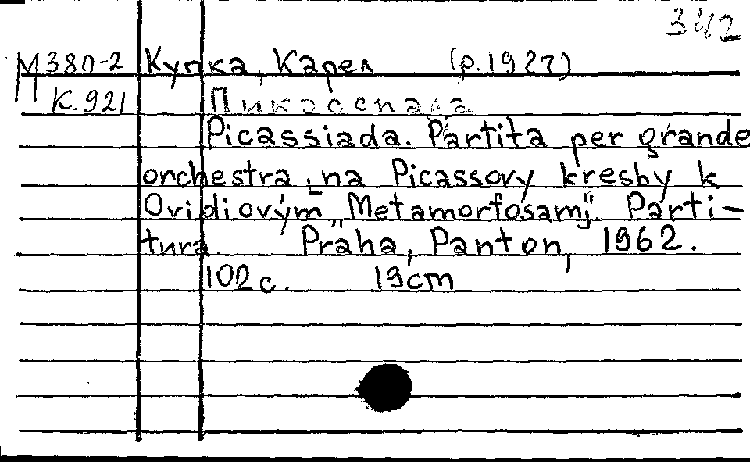 342
М380-2 Купка, Карел (р.1927)
К.921
Picassiada. Partita per grande
orchestra „na Picassovy kresby k
Ovidiovým „Metamorfosám". Parti-
tura. Praha, Panton, 1962.
102с. 19cm